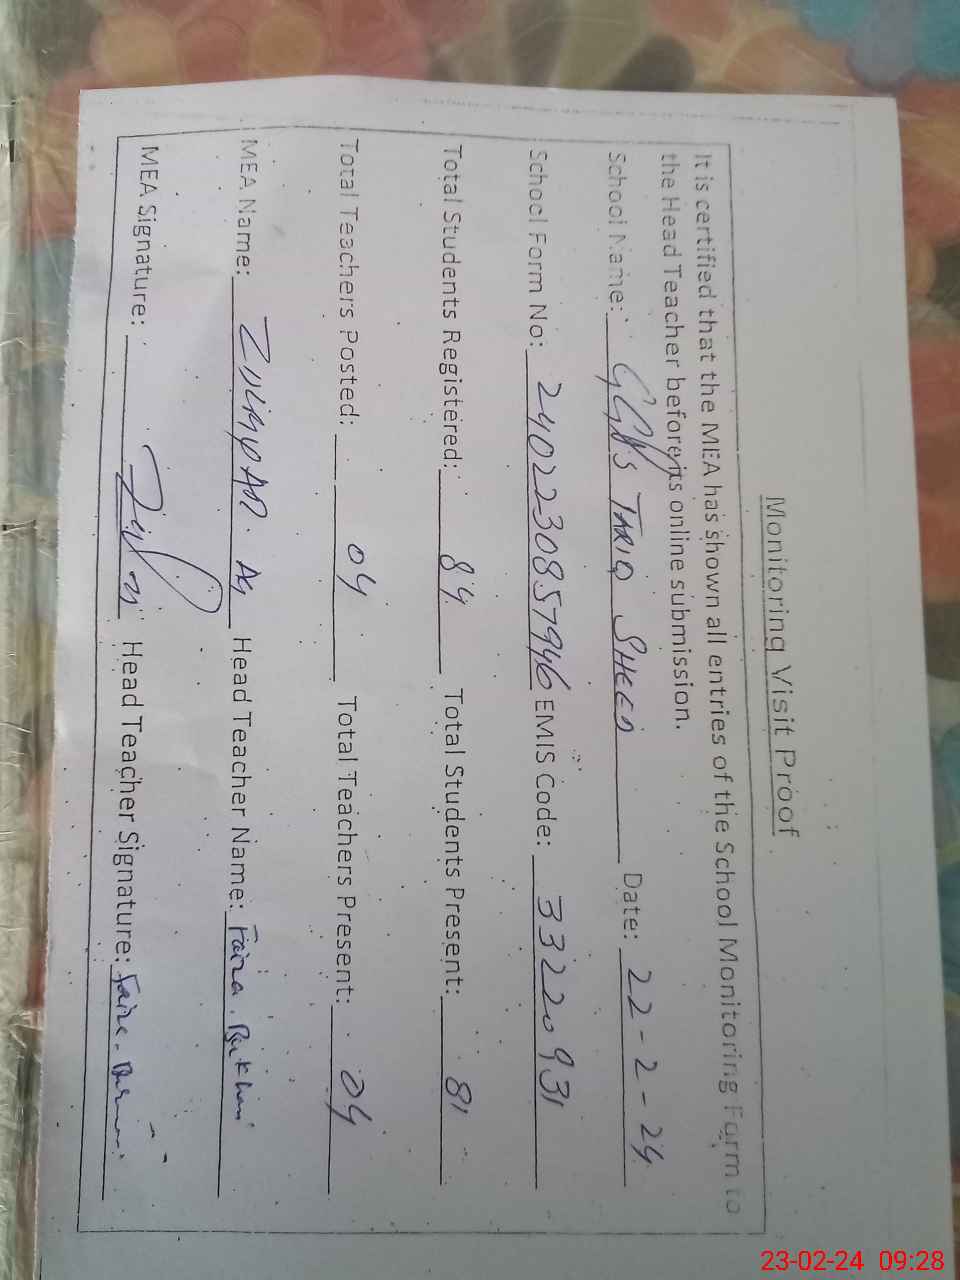 Monitoring Visit Proof
It is certified that the MEA has shown all entries of the School Monitoring Form to
the Head Teacher before its online submission.
School Name: GGPS TARIQ SHEED Date: 22-2-24
School Form No: 2402230857946 EMIS Code: 33220931
Total Students Registered: 84 Total Students Present: 81
Total Teachers Posted: 04 Total Teachers Present: 04
MEA Name: ZULIFQAR Head Teacher Name: Faiza
MEA Signature: Head Teacher Signature: Faiza
23-02-24 09:28